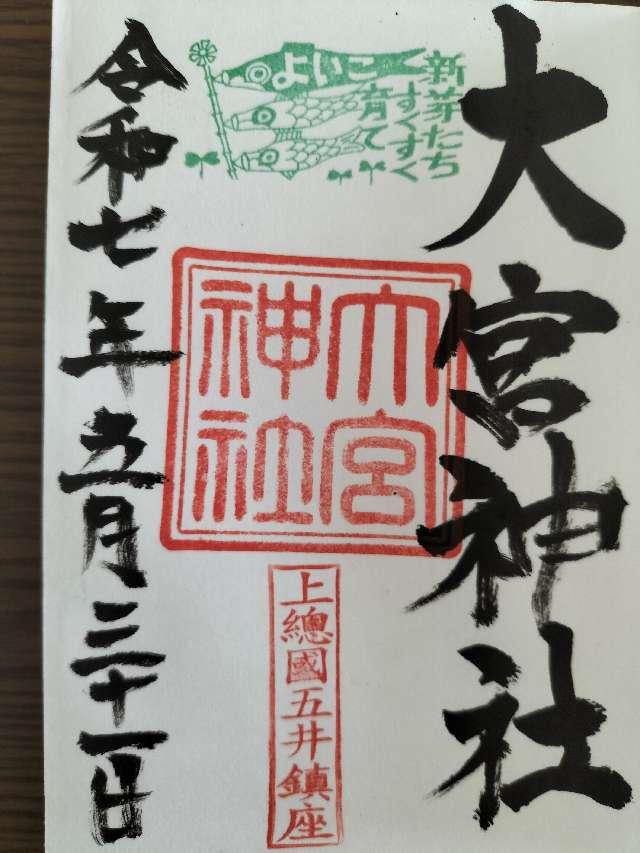 大宮神社
新芽たち
すくすく
育て
よいこ
大宮
神社
上總國五井鎮座
令和七年五月三十一日